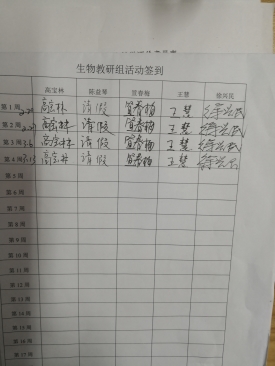 生物教研组活动签到
高宝林 陈益琴 宣春梅 王慧 徐兴民
第1周 高宝林 请假 宣春梅 王慧 徐兴民
第2周 高宝林 请假 宣春梅 王慧 徐兴民
第3周 高宝林 请假 宣春梅 王慧 徐兴民
第4周 高宝林 请假 宣春梅 王慧 徐兴民
第5周
第6周
第7周
第8周
第9周
第10周
第11周
第12周
第13周
第14周
第15周
第16周
第17周